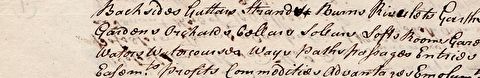 Backsides Gutters Strands Burns Rivulets Garths
Gardens Orchards Cellars Solars Lofts Rooms Gard
Waters Watercourses Ways Paths passages Entries
Easem.ts Profits Commodities Advantages Emolum